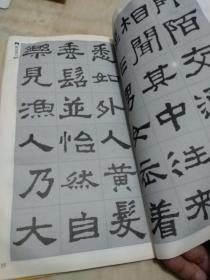 陌交
相聞其中往来
男女衣着
悉如外人黄髮
垂髫並怡然自
樂見漁人乃大